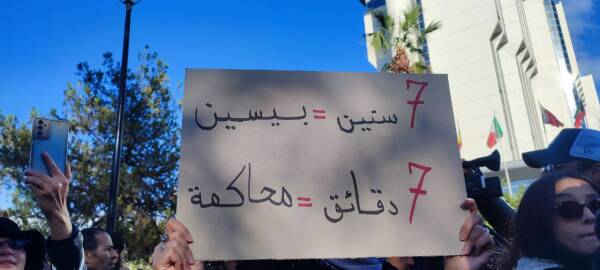 7 سنين = بيسين
7 دقائق = محاكمة